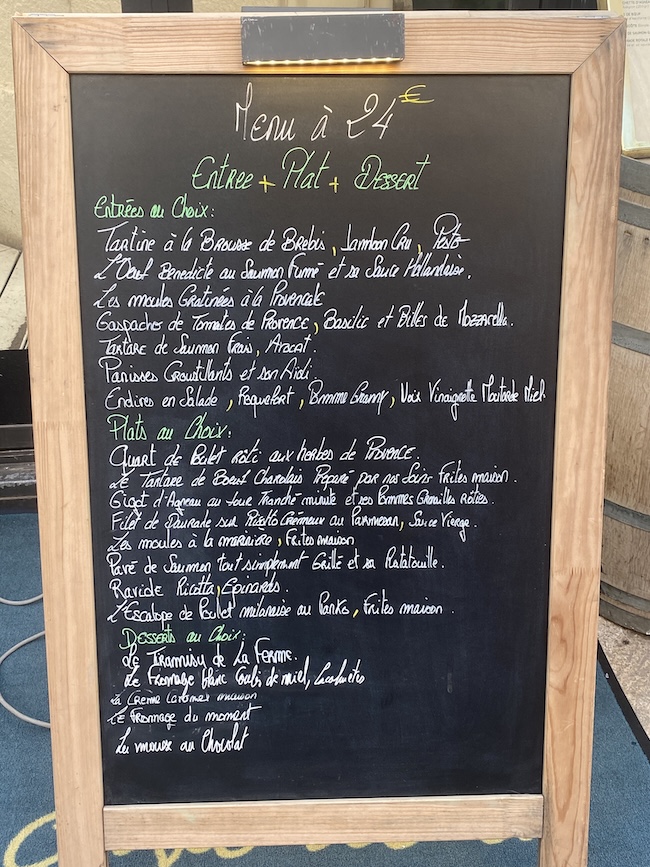 Menu à 24€
Entree + Plat + Dessert
Entrées au Choix:
Tartine à la Brousse de Brebis, Jambon Cru, Pesto
L'Oeuf Benedicte au Saumon Fumé et sa Sauce Hollandaise.
Les moules Gratinées à la Provencale
Gaspacho de Tomates de Provence, Basilic et Billes de Mozzarella.
Tartare de Saumon Frais, Avocat.
Panisses Croustillants et son Aïoli
Endives en Salade, Roquefort, Pomme Granny, Noix Vinaigrette Moutarde Miel
Plats au Choix:
Quart de Poulet rôti aux herbes de Provence.
Le Tartare de Boeuf Charolais Préparé par nos Soins Frites maison.
Gigot d'Agneau au four Tranché minute et ses Pommes Grenailles rôties.
Filet de Daurade sur Risotto Crémeux au Parmesan, Sauce Vierge.
Les moules à la marinière, Frites maison
Pavé de Saumon tout simplement Grillé et sa Ratatouille.
Raviole Ricotta, Epinards.
L'Escalope de Poulet milanaise au Panko, Frites maison.
Desserts au Choix:
Le Tiramisy de La Ferme.
Le Fromage blanc Coulis de miel, Cacahuètes
La Crème Caramel maison
Le Fromage du moment
La mousse au Chocolat